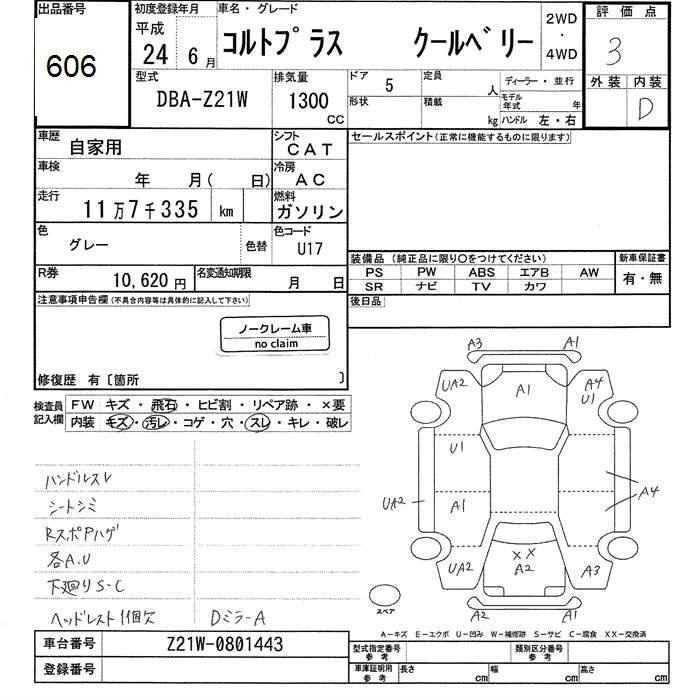 出品番号
606
初度登録年月
平成
24年 6月
車名・グレード
コルトプラス クールベリー
2WD
・
4WD
評価点
3
外装 内装
D
型式
DBA-Z21W
排気量
1300
CC
ドア 5
形状
定員 人
積載 kg
ディーラー・並行
モデル年式 年
ハンドル 左・右
車歴
自家用
シフト
CAT
車検
年 月( 日)
冷房
AC
走行
11万7千335 km
燃料
ガソリン
色
グレー
色替
色コード
U17
R券
10,620円
名変通知期限
月 日
セールスポイント(正常に機能するものに限ります)
装備品(純正品に限り〇をつけてください)
PS PW ABS エアB AW
SR ナビ TV カワ
新車保証書
有・無
後日品
注意事項申告欄(不具合内容等は具体的に記入して下さい)
ノークレーム車
no claim
修復歴 有〔箇所 〕
検査員記入欄
FW キズ・飛石・ヒビ割・リペア跡・×要
内装 キズ・汚レ・コゲ・穴・スレ・キレ・破レ
ハンドルスレ
シートシミ
RスポPハゲ
各A.U
下廻りS-C
ヘッドレスト1個欠 DミラーA
A3 A1
UA2 A1 A4
U1
U1
UA2 A1 A4
UA2 XX A2 A3
A2 A1
スペア
A-キズ E-エクボ U-凹み W-補修跡 S-サビ C-腐食 XX-交換済
車台番号 Z21W-0801443
登録番号
型式指定番号
参考
類別区分番号
参考
車庫証明用
参考
長さ cm 幅 cm 高さ cm